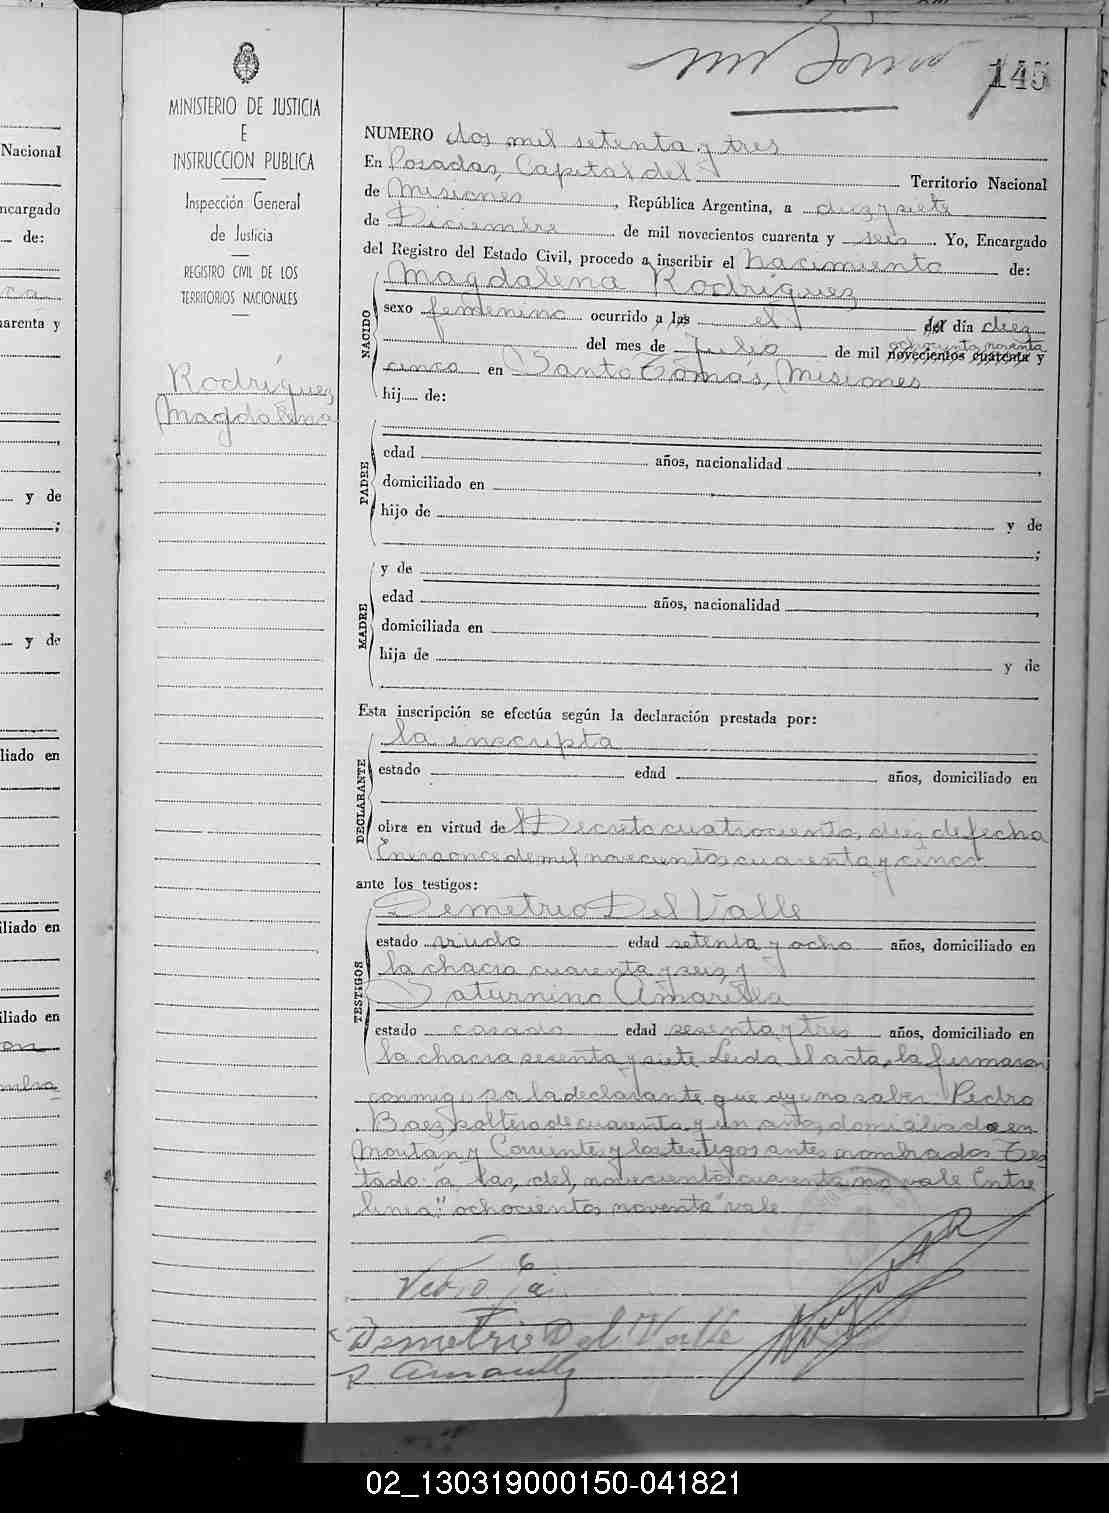 145
MINISTERIO DE JUSTICIA
E
INSTRUCCION PUBLICA
Inspección General
de Justicia
REGISTRO CIVIL DE LOS
TERRITORIOS NACIONALES
Rodríguez
Magdalena
NUMERO dos mil setenta y tres
En Posadas, Capital del Territorio Nacional
de Misiones, República Argentina, a diez y siete
de Diciembre de mil novecientos cuarenta y seis. Yo, Encargado
del Registro del Estado Civil, procedo a inscribir el nacimiento de:
NACIDO
Magdalena Rodríguez
sexo femenino ocurrido a las el del día diez
ochocientos noventa
del mes de Julio de mil novecientos cuarenta y
cinco en Santo Tomás, Misiones
hij de:
PADRE
edad años, nacionalidad ,
domiciliado en
hijo de y de
;
MADRE
y de
edad años, nacionalidad ,
domiciliada en
hija de y de
Esta inscripción se efectúa según la declaración prestada por:
DECLARANTE
la inscripta
estado edad años, domiciliado en
obra en virtud del Decreto cuatrociento, diez de fecha
Enero once de mil novecientos cuarenta y cinco
ante los testigos:
TESTIGOS
Demetrio Del Valle
estado viudo edad setenta y ocho años, domiciliado en
la chacra cuarenta y seis y
Saturnino Amarilla
estado casado edad sesenta y tres años, domiciliado en
la chacra sesenta y siete Leida el acta, la firmaron
conmigo, por la declarante que dijo no saber Pedro
Baez, soltero de cuarenta y un años, domiciliado en
Moutan y Corrientes y los testigos antes nombrados Tes
tado: a las, del, novecientos cuarenta no vale Entre
linea: "ochocientos noventa" vale
Demetrio Del Valle
Nacional
ncargado
de:
arenta y
y de
;
,
y de
liado en
iliado en
iliado en
02_130319000150-041821